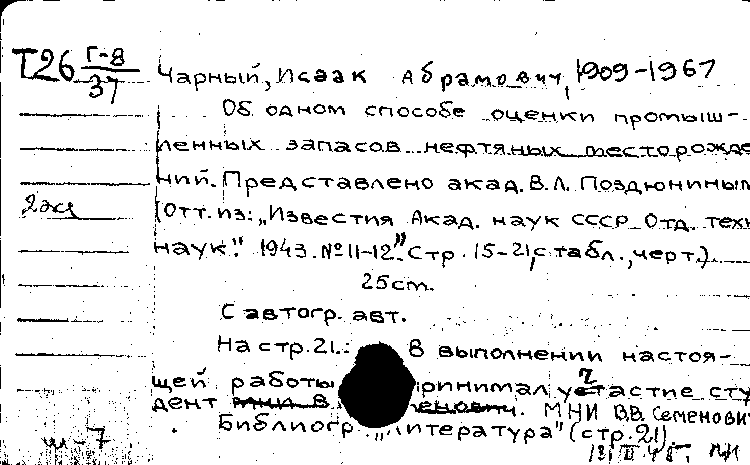 Т26 Г-8
37
Чарный, Исаак Абрамович, 1909-1967
Об одном способе оценки промыш-
ленных запасов нефтяных месторожде
ний. Представлено акад. В.Л. Поздюниным
2 экз
(Отт. из: „Известия Акад. наук СССР Отд. техн
наук." 1943. № 11-12." Стр. 15-21, с табл., черт.).
25 cm.
С автогр. авт.
На стр. 21.: В выполнении настоя-
щей работы принимал участие сту
дент МНИ В.В. Семенович
Библиогр. „Литература" (стр. 21).
ш-7